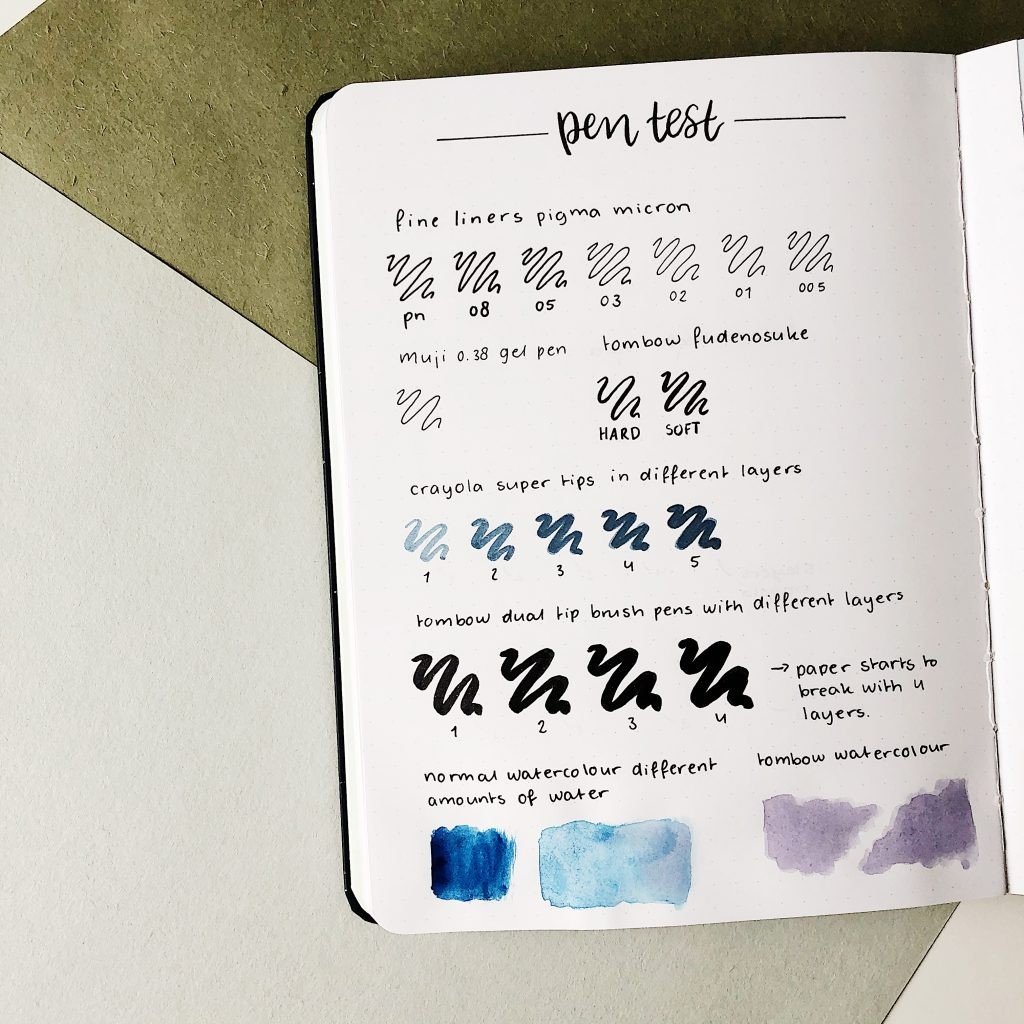 pen test
fine liners pigma micron
pn 08 05 03 02 01 005
muji 0.38 gel pen
tombow fudenosuke
HARD SOFT
crayola super tips in different layers
1 2 3 4 5
tombow dual tip brush pens with different layers
1 2 3 4
→ paper starts to
break with 4
layers.
normal watercolour different
amounts of water
tombow watercolour